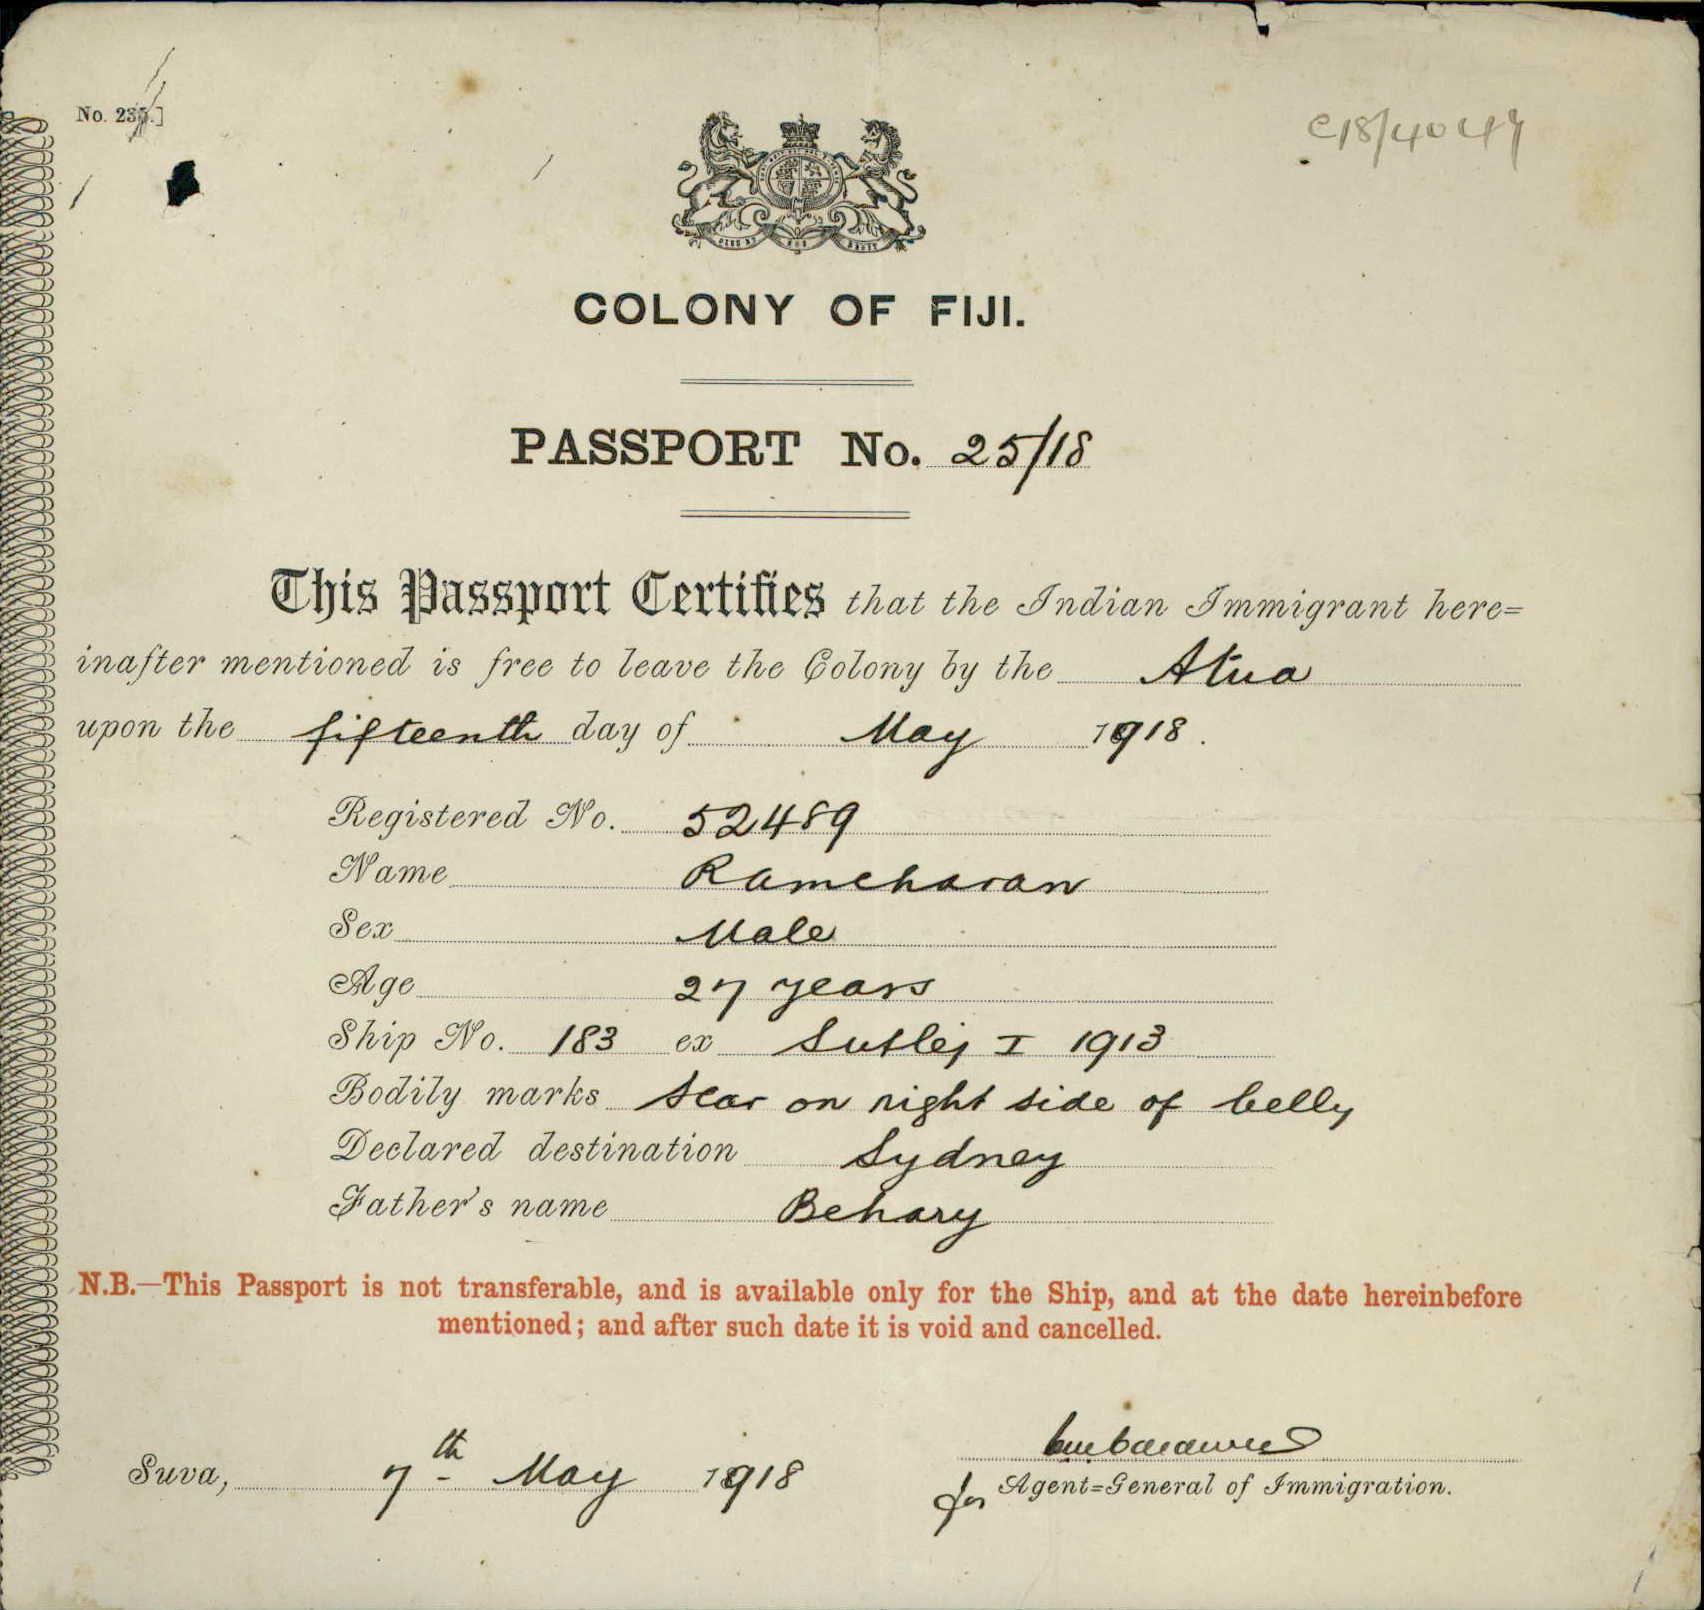 No. 235.]
C18/4047
COLONY OF FIJI.
PASSPORT No. 25/18
This Passport Certifies that the Indian Immigrant here=
inafter mentioned is free to leave the Colony by the Atua
upon the fifteenth day of May 1918.
Registered No. 52489
Name Ramcharan
Sex Male
Age 27 years
Ship No. 183 ex Sutlej I 1913
Bodily marks Scar on right side of belly
Declared destination Sydney
Father's name Behary
N.B.—This Passport is not transferable, and is available only for the Ship, and at the date hereinbefore
mentioned; and after such date it is void and cancelled.
Suva, 7th May 1918
for Agent=General of Immigration.